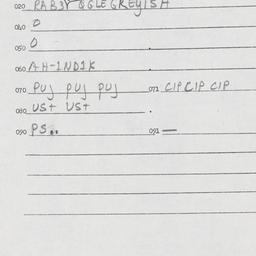 020 PAB3Y OGLE GREYISH
040 O
050 O
060 AH-1ND1K
070 PUJ PUJ PUJ 071 CIP CIP CIP
080 USt USt
090 PS.. 091 —